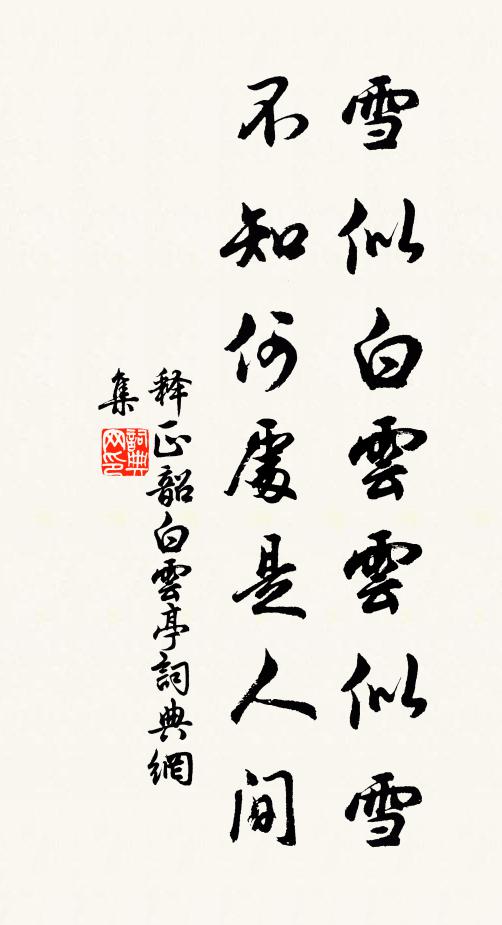 雪似白雲雲似雪
不知何處是人間
释正韶白雲亭詞典網
集
詞典
网印